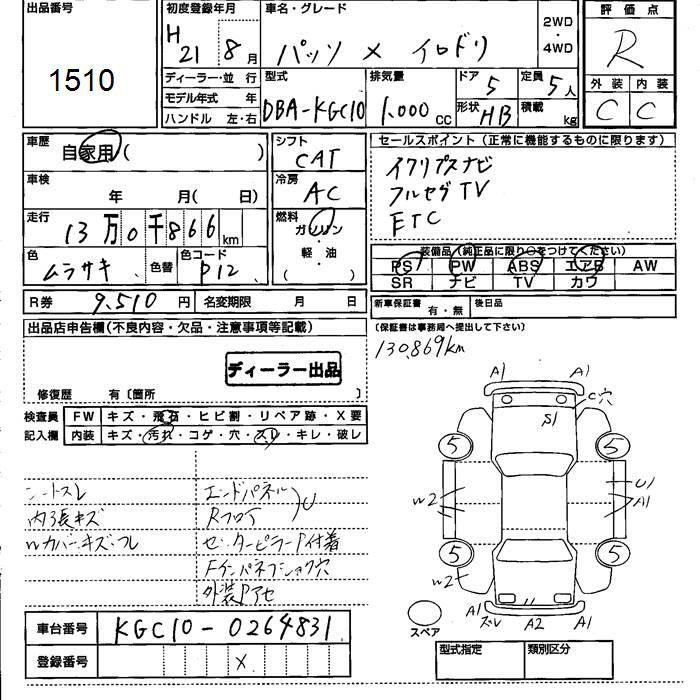 出品番号
1510
初度登録年月
H 21 8月
車名・グレード
パッソ × イロドリ
2WD
・
4WD
評価点
R
ディーラー・並行
モデル年式 年
ハンドル 左・右
型式
DBA-KGC10
排気量
1,000cc
ドア 5
形状 HB
定員 5人
積載 kg
外装 内装
C C
車歴
自家用( )
シフト
CAT
車検
年 月( 日)
冷房
AC
走行
13万0千866km
燃料
ガソリン
軽・油
( )
色
ムラサキ
色替
色コード
P12
セールスポイント(正常に機能するものに限ります)
イクリプスナビ
フルセグTV
ETC
装備品(純正品に限り○をつけてください)
PS PW ABS エアB AW
SR ナビ TV カワ
R券 9,510円 名変期限 月 日
新車保証書 有・無 後日品
(保証書は事務局へ提出して下さい)
130,869km
出品店申告欄(不良内容・欠品・注意事項等記載)
ディーラー出品
修復歴 有〔箇所 〕
検査員 FW キズ・飛石・ヒビ割・リペア跡・X要
記入欄 内装 キズ・汚れ・コゲ・穴・スレ・キレ・破レ
シートスレ
内張キズ
Wカバーキズ・スレ
エンドパネル
Rフロア
U
センターピラーP付着
Fインパネフショク穴
外装Pアセ
A1 A1
C穴
S1
5 5
U1
A1
W2
5 5
W2
A1 スレ A2 A1
スペア
車台番号 KGC10-0264831
登録番号 ×
型式指定 類別区分